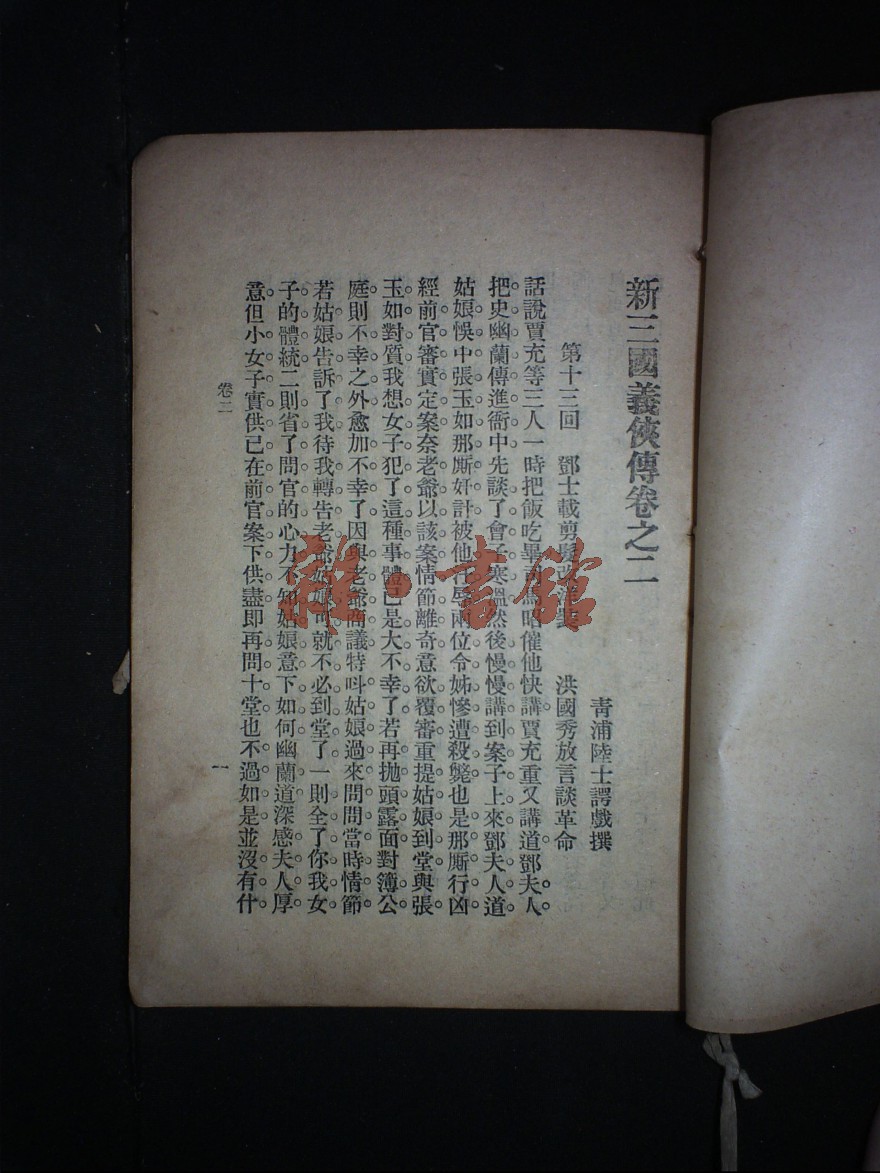 新三國義俠傳卷之二
青浦陸士諤戲撰
第十三回　鄧士載剪髮改洋裝　洪國秀放言談革命
話說賈充等三人一時把飯吃畢司馬昭催他快講賈充重又講道鄧夫人
把史幽蘭傳進衙中先談了會子寒溫然後慢慢講到案子上來鄧夫人道
姑娘悞中張玉如那厮奸計被他汙辱兩位令姊慘遭殺斃也是那厮行凶
經前官審實定案奈老爺以該案情節離奇意欲覆審重提姑娘到堂與張
玉如對質我想女子犯了這種事體已是大不幸了若再抛頭露面對簿公
庭則不幸之外愈加不幸了因與老爺商議特呌姑娘過來問問當時情節
若姑娘告訴了我待我轉告老爺姑娘可就不必到堂了一則全了你我女
子的體統二則省了問官的心力不知姑娘意下如何幽蘭道深感夫人厚
意但小女子實供已在前官案下供盡即再問十堂也不過如是並沒有什
卷二
一
雜·書館